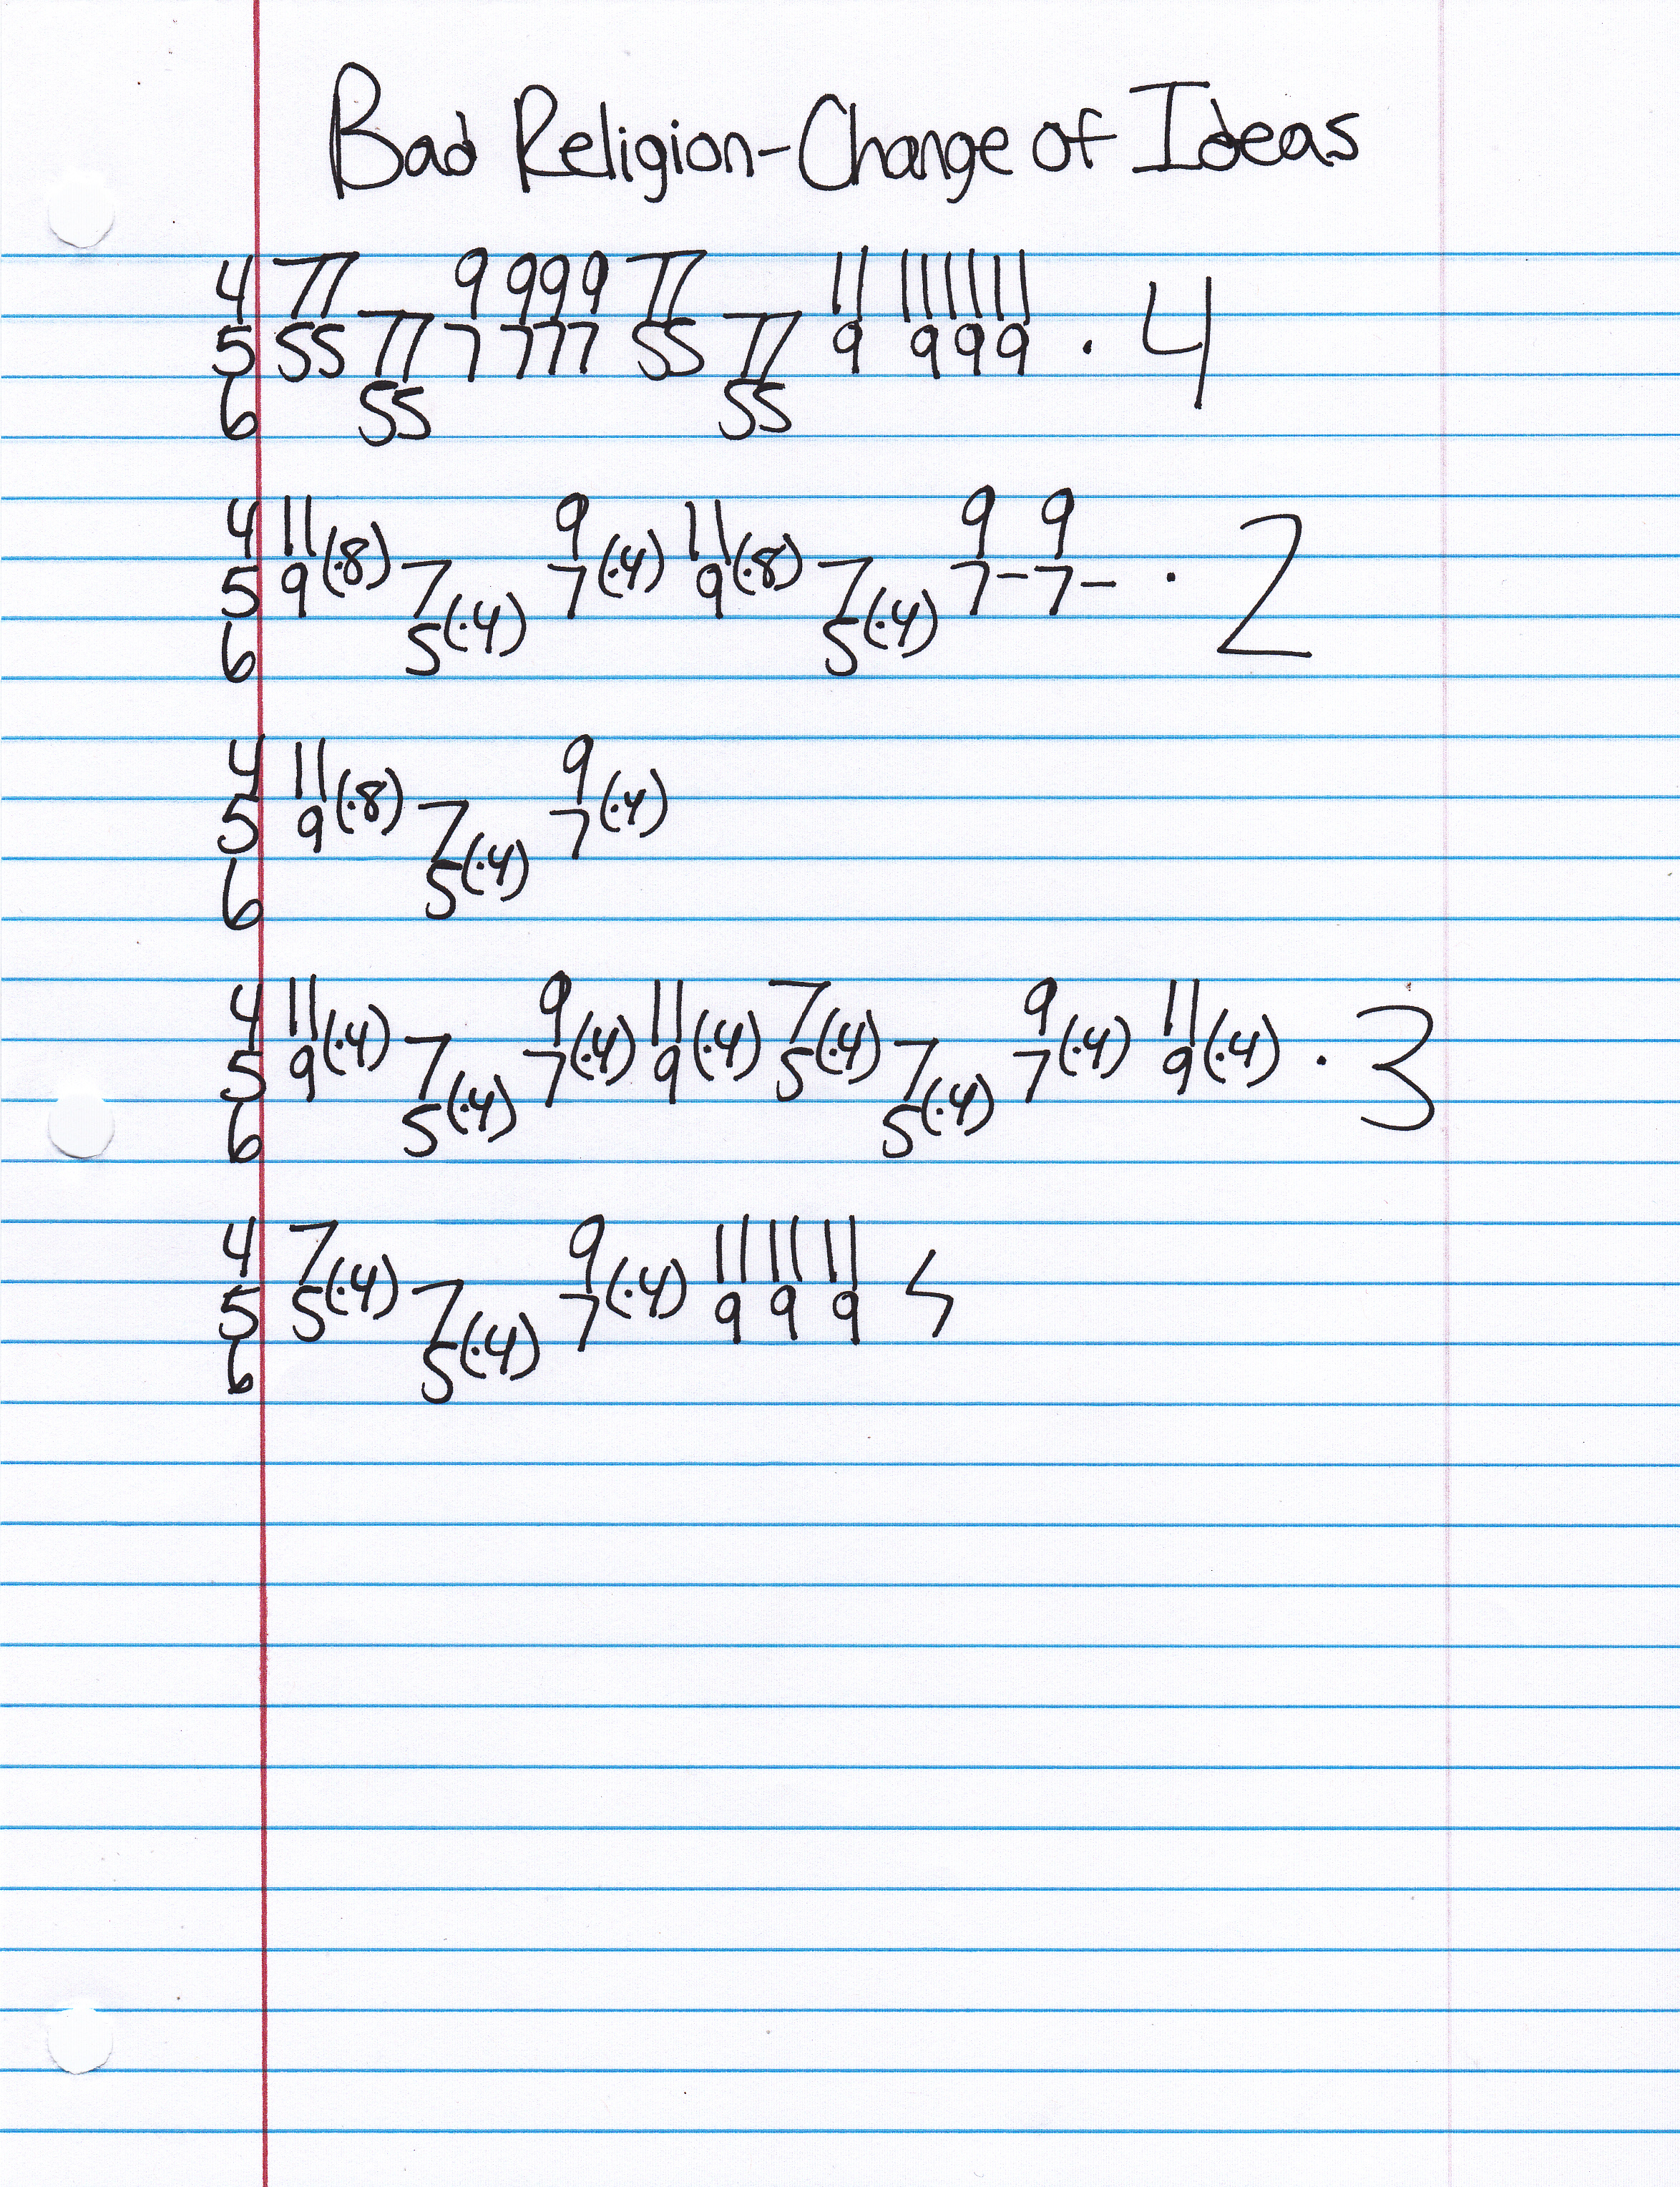 Bad Religion-Change of Ideas
4 77 9 999 77 11 11 11 11
5 55 77 7 777 55 77 9 9 9 9 · 4
6 55 55
4 11 9 11 9 9
5 9(·8) 7 7(·4) 9(·8) 7 7- 7- · 2
6 5(·4) 5(·4)
4 11 9
5 9(·8) 7 7(·4)
6 5(·4)
4 11 9 11 7 9 11
5 9(·4) 7 7(·4) 9(·4) 5(·4) 7 7(·4) 9(·4) · 3
6 5(·4) 5(·4)
4 7 9 11 11 11
5 5(·4) 7 7(·4) 9 9 9
6 5(·4)